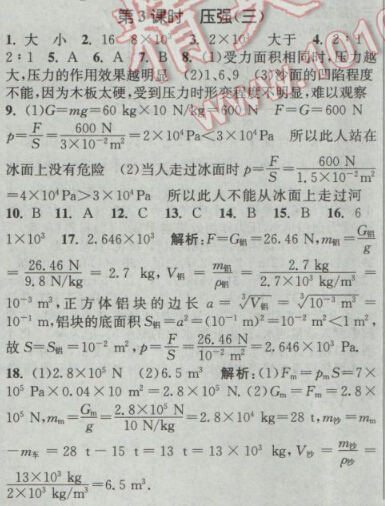 第3课时 压强(三)
1. 大 小 2. 16 8×10 3 2×10³ 大于 4. 2∶1
2∶1 5. A 6. A 7. B 8. (1)受力面积相同时,压力越
大,压力的作用效果越明显 (2)1、6、9 (3)海面的凹陷程度
不能,因为木板太硬,受到压力时形变程度不明显,难以观察
9. (1)G=mg=60 kg×10 N/kg=600 N F=G=600 N
p=F/S=600 N/3×10⁻² m²=2×10⁴ Pa<3×10⁴ Pa 所以此人站在
冰面上没有危险 (2)当人走过冰面时p=F/S=600 N/1.5×10⁻² m²
=4×10⁴ Pa>3×10⁴ Pa 所以此人不能从冰面上走过河
10. B 11. A 12. C 13. C 14. B 15. B 16. 6
1×10³ 17. 2.646×10³ 解析:F=G铝=26.46 N,m铝=G铝/g
=26.46 N/9.8 N/kg=2.7 kg,V铝=m铝/ρ铝=2.7 kg/2.7×10³ kg/m³=
10⁻³ m³,正方体铝块的边长 a=∛V铝=∛10⁻³ m³=
10⁻¹ m,铝块的底面积S铝=a²=(10⁻¹ m)²=10⁻² m²<1 m²,
故 S=S铝=10⁻² m²,p=F/S=26.46 N/10⁻² m²=2.646×10³ Pa.
18. (1)2.8×10⁵ N (2)6.5 m³ 解析:(1)Fₘ=pₘS=7×
10⁵ Pa×0.04×10 m²=2.8×10⁵ N. (2)Gₘ=Fₘ=2.8×
10⁵ N,mₘ=Gₘ/g=2.8×10⁵ N/10 N/kg=2.8×10⁴ kg=28 t,m沙=mₘ
-m车=28 t-15 t=13 t=13×10³ kg,V沙=m沙/ρ沙=
13×10³ kg/2×10³ kg/m³=6.5 m³.